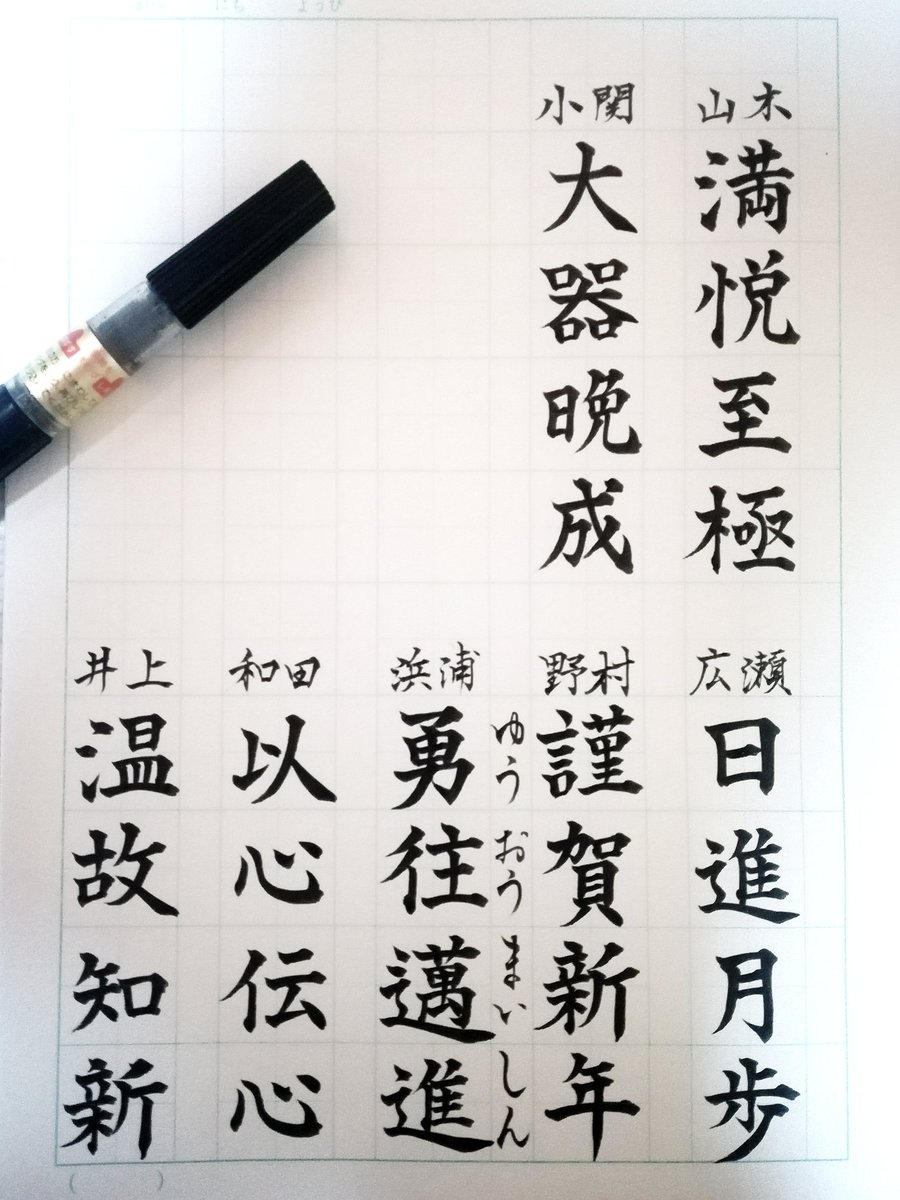 にち ようび
山木
満悦至極
小関
大器晩成
広瀬
日進月歩
野村
謹賀新年
浜浦
勇往邁進
ゆうおうまいしん
和田
以心伝心
井上
温故知新
( )